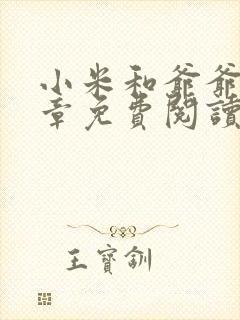 小米和爺爺
章免費閱讀
王寶釧